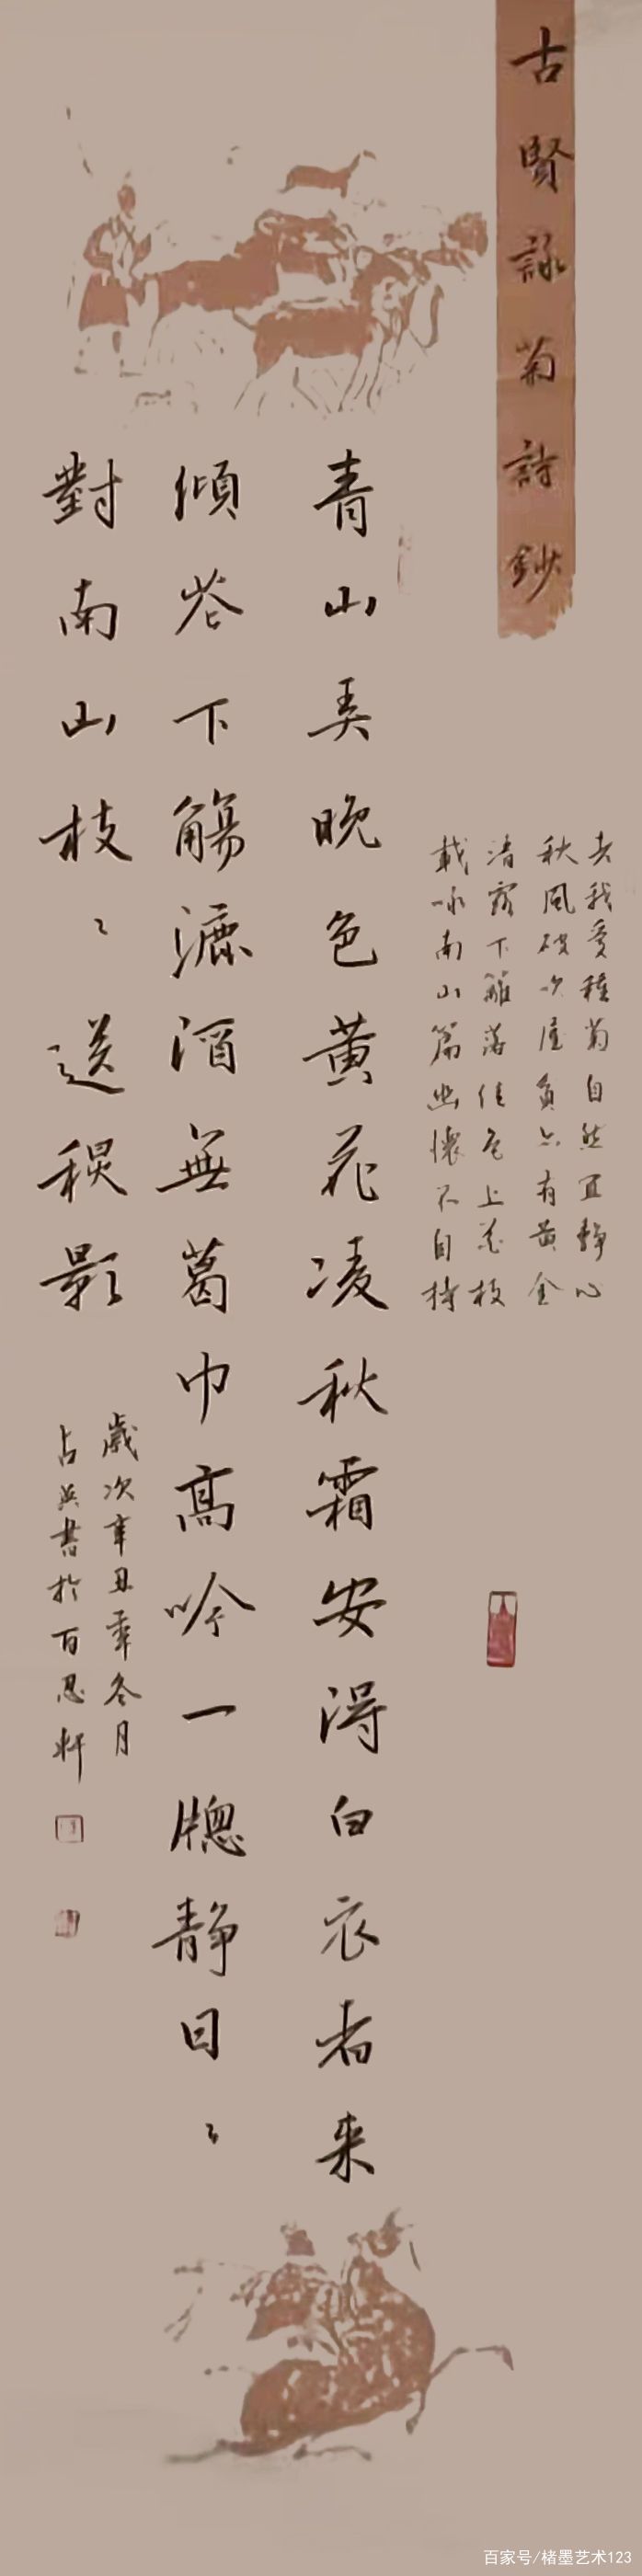 古賢詠菊詩鈔
老我爱種菊自然宜静心
秋風破吹屋貧亦有黄金
清露下籬落佳色上花枝
載咏南山篇幽懷不自持
青山美晚色黄花凌秋霜安得白衣者来
傾花下觴漉酒無葛巾高吟一牕静日〻
對南山枝〻送秋影
歲次辛丑年冬月
占英書於百忍軒
百家号/楮墨艺术123